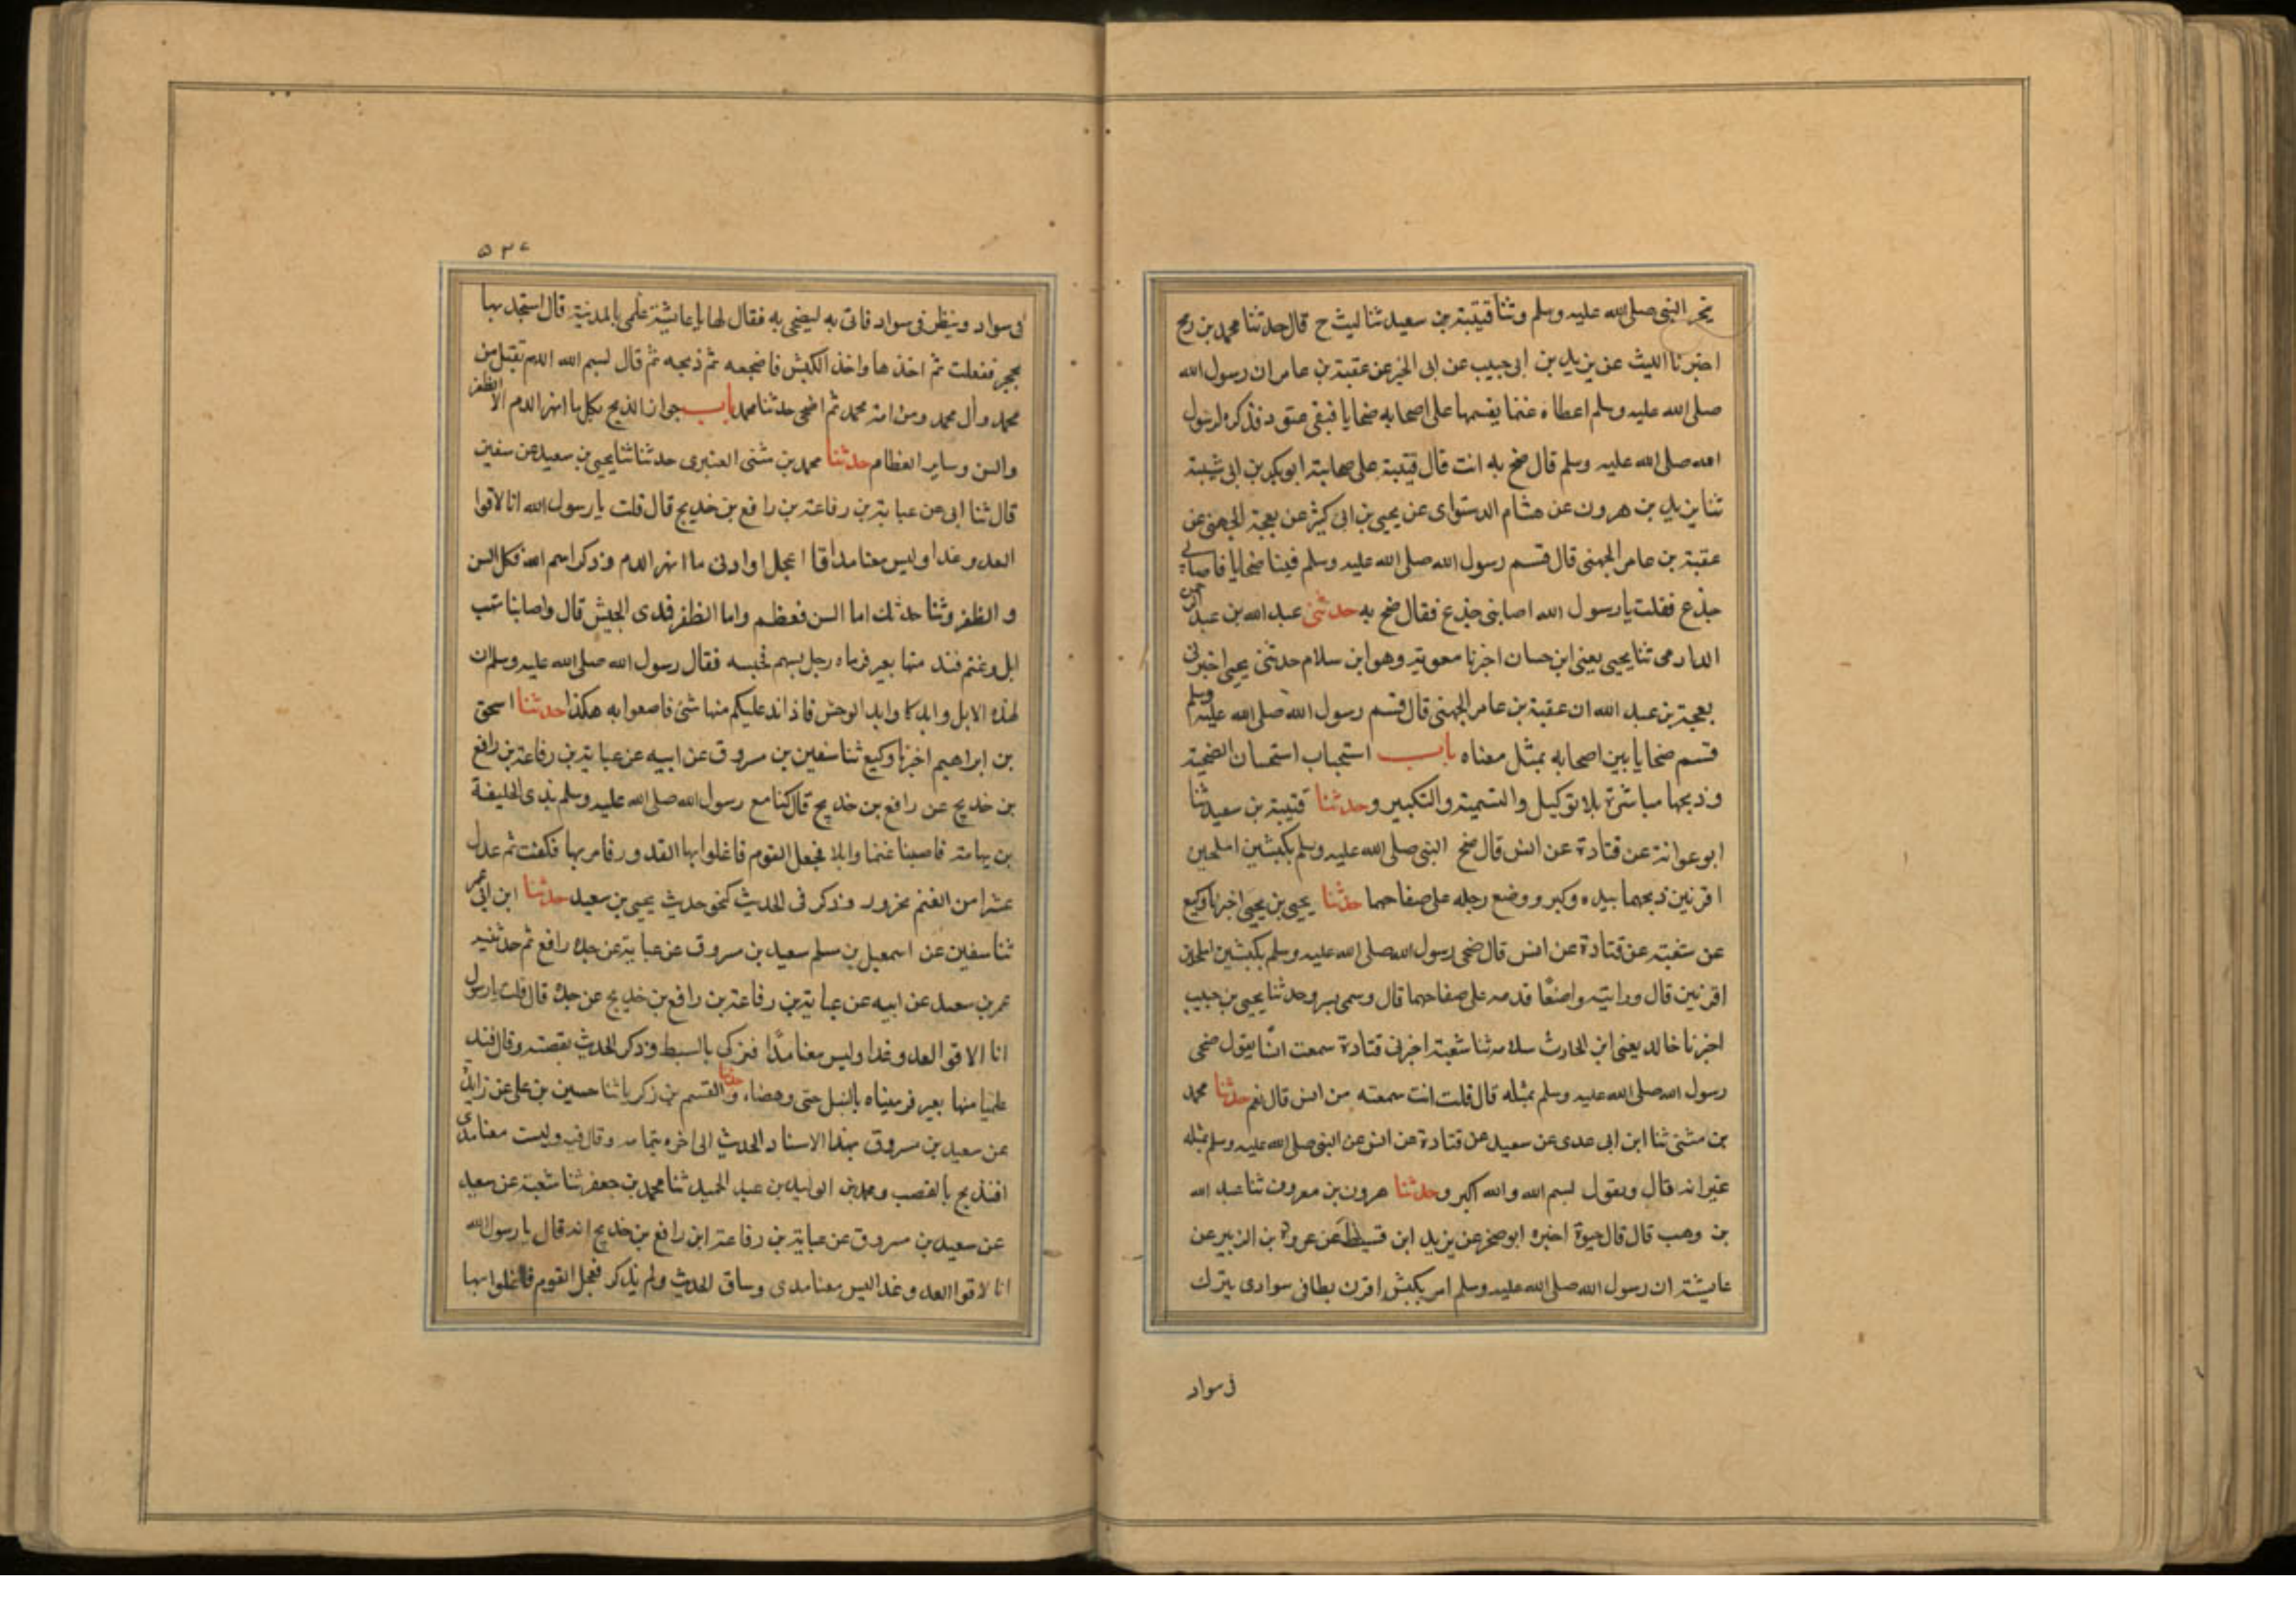 ينحر النبى صلى الله عليه وسلم وثنا قتيبة بن سعيد ثنا ليث ح قال حدثنا محمد بن رمح
اخبرنا الليث عن يزيد بن ابى حبيب عن ابى الخير عن عقبة بن عامر ان رسول الله
صلى الله عليه وسلم اعطاه غنما يقسمها على اصحابه ضحايا فبقى عتود فذكره لرسول
الله صلى الله عليه وسلم قال ضح به انت قال قتيبة على صحابته ابو بكر بن ابى شيبة
ثنا يزيد بن هرون عن هشام الدستواى عن يحيى بن ابى كثير عن بعجة الجهنى عن
عقبة بن عامر الجهنى قال قسم رسول الله صلى الله عليه وسلم فينا ضحايا فاصابنى
جذع فقلت يا رسول الله اصابنى جذع فقال ضح به حدثنى عبد الله بن عبد الرحمن
الدارمى ثنا يحيى يعنى ابن حسان اخبرنا معوية وهو ابن سلام حدثنى يحيى اخبرنى
بعجة بن عبد الله ان عقبة بن عامر الجهنى قال قسم رسول الله صلى الله عليه وسلم
قسم ضحايا بين اصحابه بمثل معناه باب استحباب استحسان الضحية
وذبحها مباشرة بلا توكيل والتسمية والتكبير وحدثنا قتيبة بن سعيد ثنا
ابو عوانة عن قتادة عن انس قال ضح النبى صلى الله عليه وسلم بكبشين املحين
اقرنين ذبحهما بيده وكبر ووضع رجله على صفاحهما حدثنا يحيى بن يحيى اخبرنا وكيع
عن شعبة عن قتادة عن انس قال ضحى رسول الله صلى الله عليه وسلم بكبشين املحين
اقرنين قال ورايته واضعًا قدمه على صفاحهما قال وسمى وحدثنا يحيى بن حبيب
اخبرنا خالد يعنى ابن الحارث ثنا شعبة اخبرنى قتادة سمعت انسًا يقول ضحى
رسول الله صلى الله عليه وسلم بمثله قال قلت انت سمعته من انس قال نعم حدثنا محمد
بن مثنى ثنا ابن ابى عدى عن سعيد عن قتادة عن انس عن النبى صلى الله عليه وسلم بمثله
غير انه قال ويقول بسم الله والله اكبر وحدثنا هرون بن معروف ثنا عبد الله
بن وهب قال قال حيوة اخبره ابو صخر عن يزيد ابن قسيط عن عروة بن الزبير عن
عايشة ان رسول الله صلى الله عليه وسلم امر بكبش اقرن يطا فى سواد ى يترك
فى سواد
٥٢٧
فى سواد وينظر فى سواد فاتى به ليضحى به فقال لها يا عايشة علمى بالمدية قال استحد بها
بحجر ففعلت ثم اخذها واخذ الكبش فاضجعه ثم ذبحه ثم قال بسم الله اللهم تقبل من
محمد وآل محمد ومن امة محمد ثم اضحى حدثنا محمد باب جواز الذبح بكل ما انهر الدم الا الظفر
والسن وساير العظام حدثنا محمد بن مثنى العنبرى حدثنا ثنا يحيى بن سعيد عن سفين
قال ثنا ابى عن عباية بن رفاعة بن رافع بن خديج قال قلت يا رسول الله انا لاقوا
العدو غدا وليس معنا مدا قا اعجل او ارنى ما انهر الدم وذكر اسم الله فكل السن
و الظفر وثنا حدثك اما السن فعظم واما الظفر فمدى الجيش قال واصابنا نهب
ابل وغنم فند منها بعير فرماه رجل بسهم فحبسه فقال رسول الله صلى الله عليه وسلم ان
لهذه الابل وابد كاوابد الوحش فاذا ند عليكم منها شئ فاصنعوا به هكذا حدثنا اسحق
بن ابراهيم اخبرنا وكيع ثنا سفين بن مسروق عن ابيه عن عباية بن رفاعة بن رافع
بن خديج عن رافع بن خديج قال كنا مع رسول الله صلى الله عليه وسلم بذى الحليفة
بن تهامة فاصبنا غنما وابلا فجعل القوم فاغلوا بها القدور فامر بها فكفئت ثم عدل
عشرا من الغنم بجزور وذكر فى الحديث كنحو حديث يحيى بن سعيد حدثنا ابن ابى عمر
ثنا سفين عن اسمعيل بن مسلم سعيد بن مسروق عن عباية عن جده رافع ثم حدثنيه
عمر بن سعيد عن ابيه عن عباية بن رفاعة بن رافع بن خديج عن جده قال قلت يا رسول
انا الاقوا العدو غدا وليس معنا مدًا فنزكى بالسيط وذكر الحديث بقصته وقال فند
علينا منها بعير فرميناه بالنبل حتى وهصناه وحدثنا القسم بن زكريا ثنا حسين بن على عن زايدة
عن سعيد بن مسروق بهذا الاسناد الحديث الى اخره بتمامه وقال فيه وليست معنا مدى
افنذبح بالقصب ومحمد بن الوليد بن عبد الحميد ثنا محمد بن جعفر ثنا شعبة عن سعيد
عن سعيد بن مسروق عن عباية بن رفاعة ابن رافع بن خديج انه قال يا رسول الله
انا لاقوا العدو غدا ليس معنا مدى وساق الحديث ولم يذكر فعجل القوم فاغلوا بها